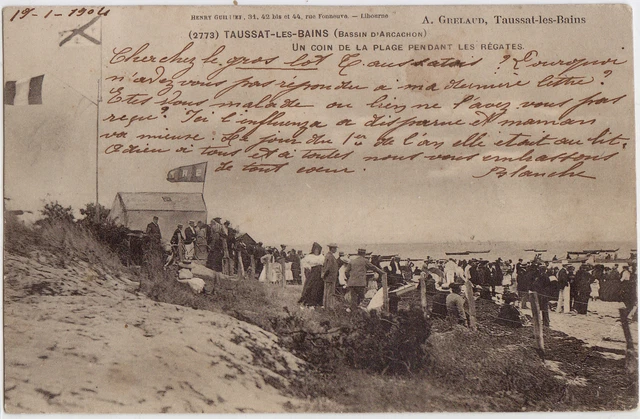 19-1-1904
HENRY GUILLIER, 31, 42 bis et 44, rue Fonneuve. — Libourne
A. GRELAUD, Taussat-les-Bains
(2773) TAUSSAT-LES-BAINS (BASSIN D'ARCACHON)
UN COIN DE LA PLAGE PENDANT LES RÉGATES.
Cherchez le gros lot Taussatais ? Pourquoi
n'avez vous pas répondu a ma dernière lettre ?
Etes vous malade ou bien ne l'avez vous pas
reçu ? Ici l'influenza a disparue Maman
va mieux. Le jour du 1er de l'an elle était au lit.
Adieu à tous et à toutes nous vous embrassons
de tout coeur. Blanche